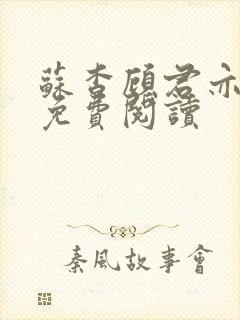 蘇杳顧君亦
免費閱讀
秦風故事會